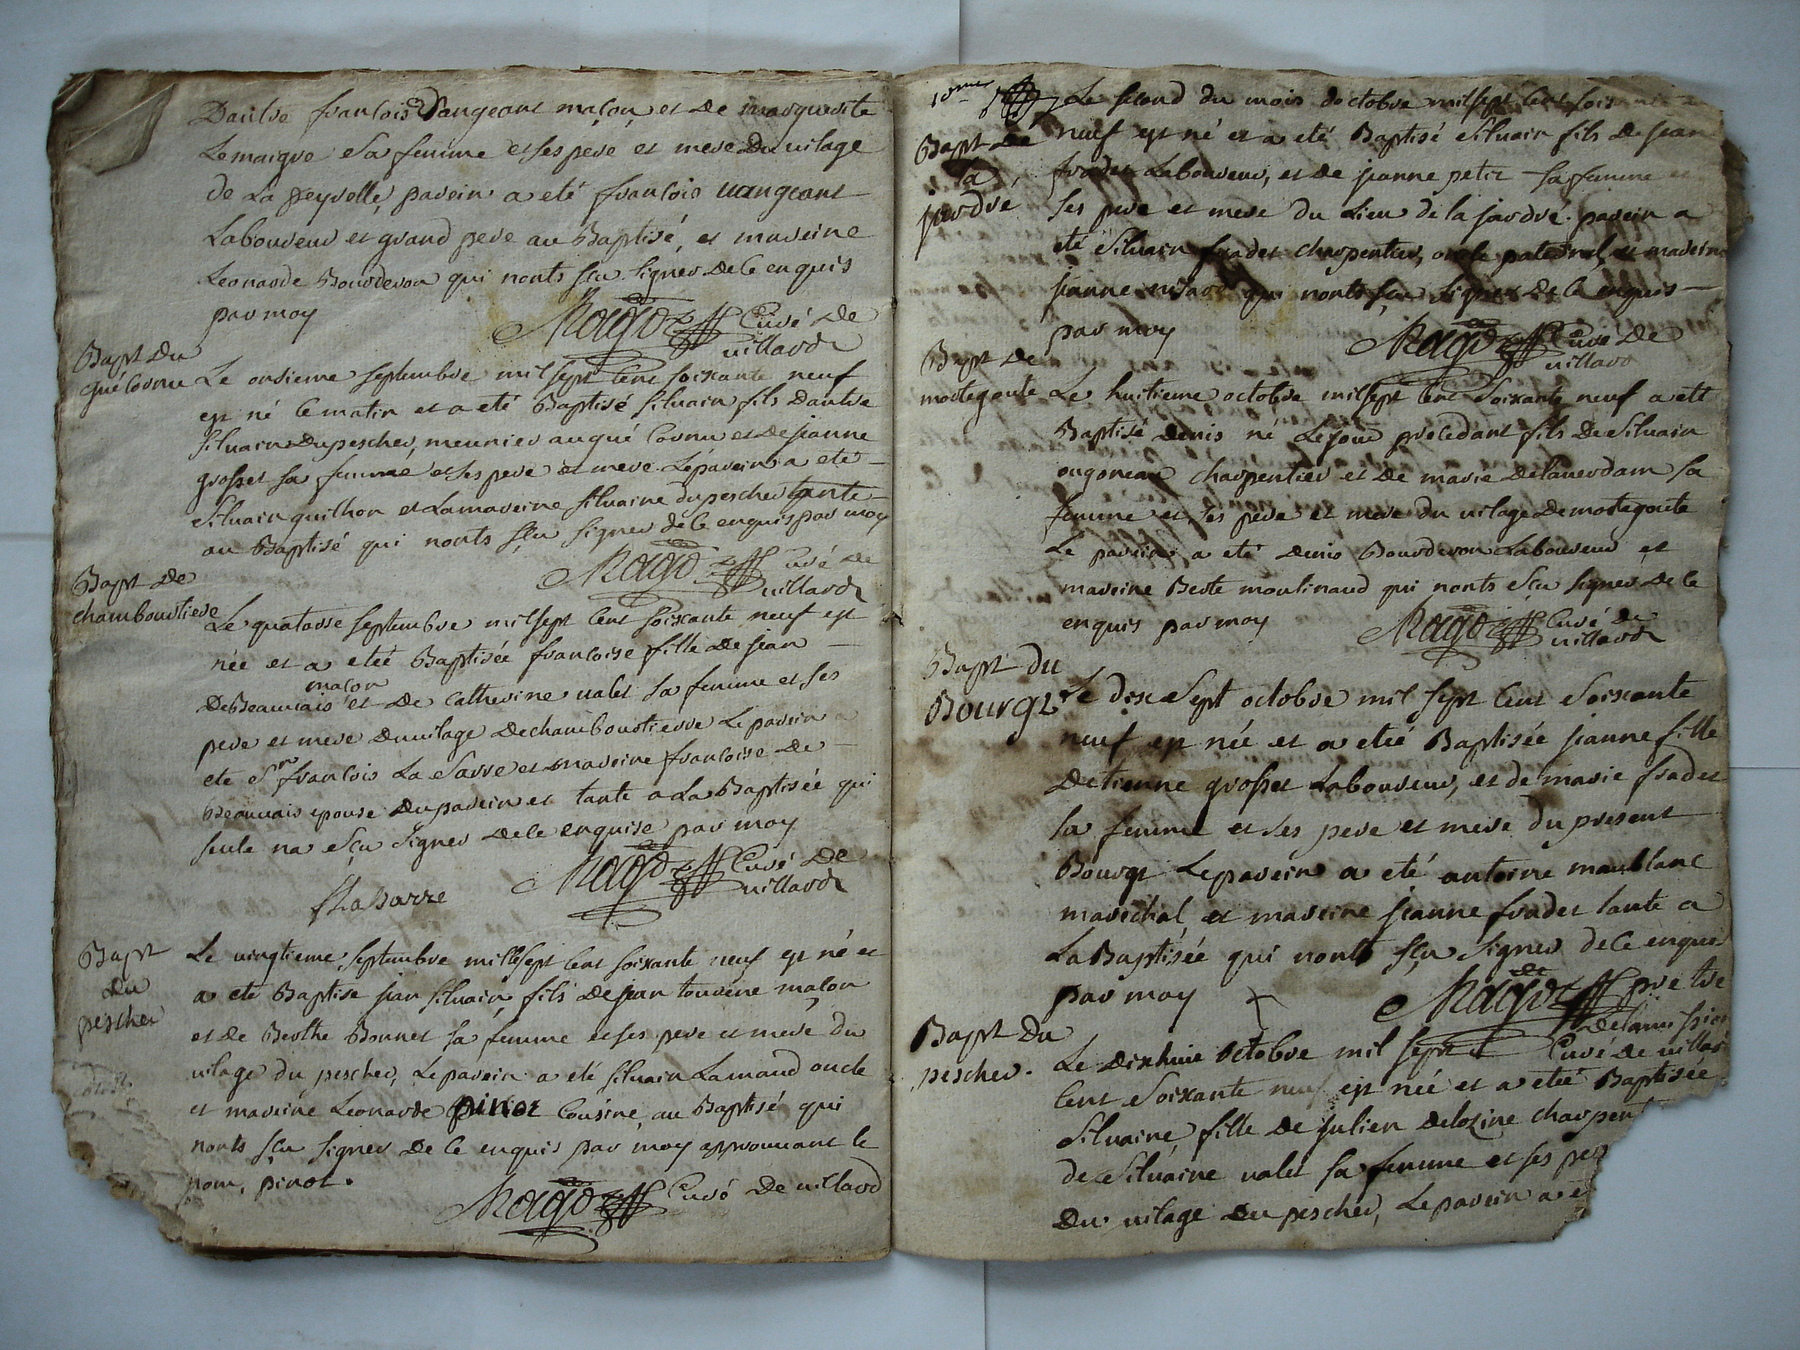 Dautre francois Vangeant maçon et de marguerite
Lemaigre Sa femme et ses pere et mere Du vilage
de La peyrelle, parein a eté francois vangeant
Laboureur et grand pere au Baptisé, et mareine
Leonarde Bourderon qui nonts sçu signer de ce enquis
par moy
Curé de
villard
Bapt Du
gué Cornu
Le onsieme septembre mil sept Cent soixante neuf
est né Ce matin et a eté Baptisé silvain fils Dautre
silvain Dupescher, meunier au gué Cornu et de jeanne
grosset sa femme et ses pere et mere Le parein a eté
silvain guilhon et La mareine silvaine dupescher tante
au Baptisé qui nonts sçu signer de Ce enquis par moy
Curé de
villard
Bapt De
chamboustiere
Le quatorse septembre mil sept Cent soixante neuf est
née et a eteé Baptisée francoise fille De jean
maçon
De Beauvais et De Catherine valet sa femme et ses
pere et mere Du vilage De chamboustierre Le parein a
ete Sr francois La Sarre et mareine francoise De
Beauvais epouse Du parein et tante a La Baptisée qui
seule na sçu signer De Ce enquise par moy
Curé De
villard
Bapt
Du
pescher
Le vingtieme septembre mill sept Cent soixante neuf est né et
a eté Baptise jean silvain fils De jean tourene maçon
et de Berthe Bonnet sa femme et ses pere et mere du
vilage du pescher, Le parein a eté silvain Lamaud oncle
et mareine Leonarde pinot Cousine au Baptisé qui
nonts sçu signer de Ce enquis par moy approuvant le
nom, pinot.
Curé De villard
Le second du mois doctobre mil sept Cent
Bapt De
la
jardre
neuf est né et a eté Baptisé silvain fils De jean
frader Laboureur, et De jeanne petit sa femme et
ses pere et mere du Lieu de la jardré. parein a
eté silvain frader charpentier, oncle paternel, et mareine
jeanne qui nonts sçu signer De Ce enquis
par moy
Curé De
villard
Bapt De
mortegoute
Le huitieme octobre mil sept Cent Soixante neuf a ett
Baptisé denis né Le jour precedant fils De Silvain
charpentier et De marie Delaverdam sa
femme et ses pere et mere du vilage De mortegoute
Le parein a eté denis Bourderon Laboureur et
mareine Berte moulinaud qui nonts sçu signer De Ce
enquis par moy
Curé De
villard
Bapt du
Bourgt
Le dix Sept octobre mil sept Cent Soixante
neuf est née et a eteé Baptisée jeanne fille
Detienne grosset Laboureur, et de marie frader
sa femme et ses pere et mere du present
Bourgt Le parein a eté antoine maublanc
marechal, et mareine jeanne frader tante a
La Baptisée qui nonts sçu signer de Ce enquis
par moy
pretre
Curé de villard
Bapt Du
pescher.
Le dixhuit octobre mil sept
Cent Soixante neuf est née et a eteé Baptisée
Silvaine fille De julien delozine charpent
de Silvaine valet sa femme et ses per
Du vilage Du pescher, Le parein a e